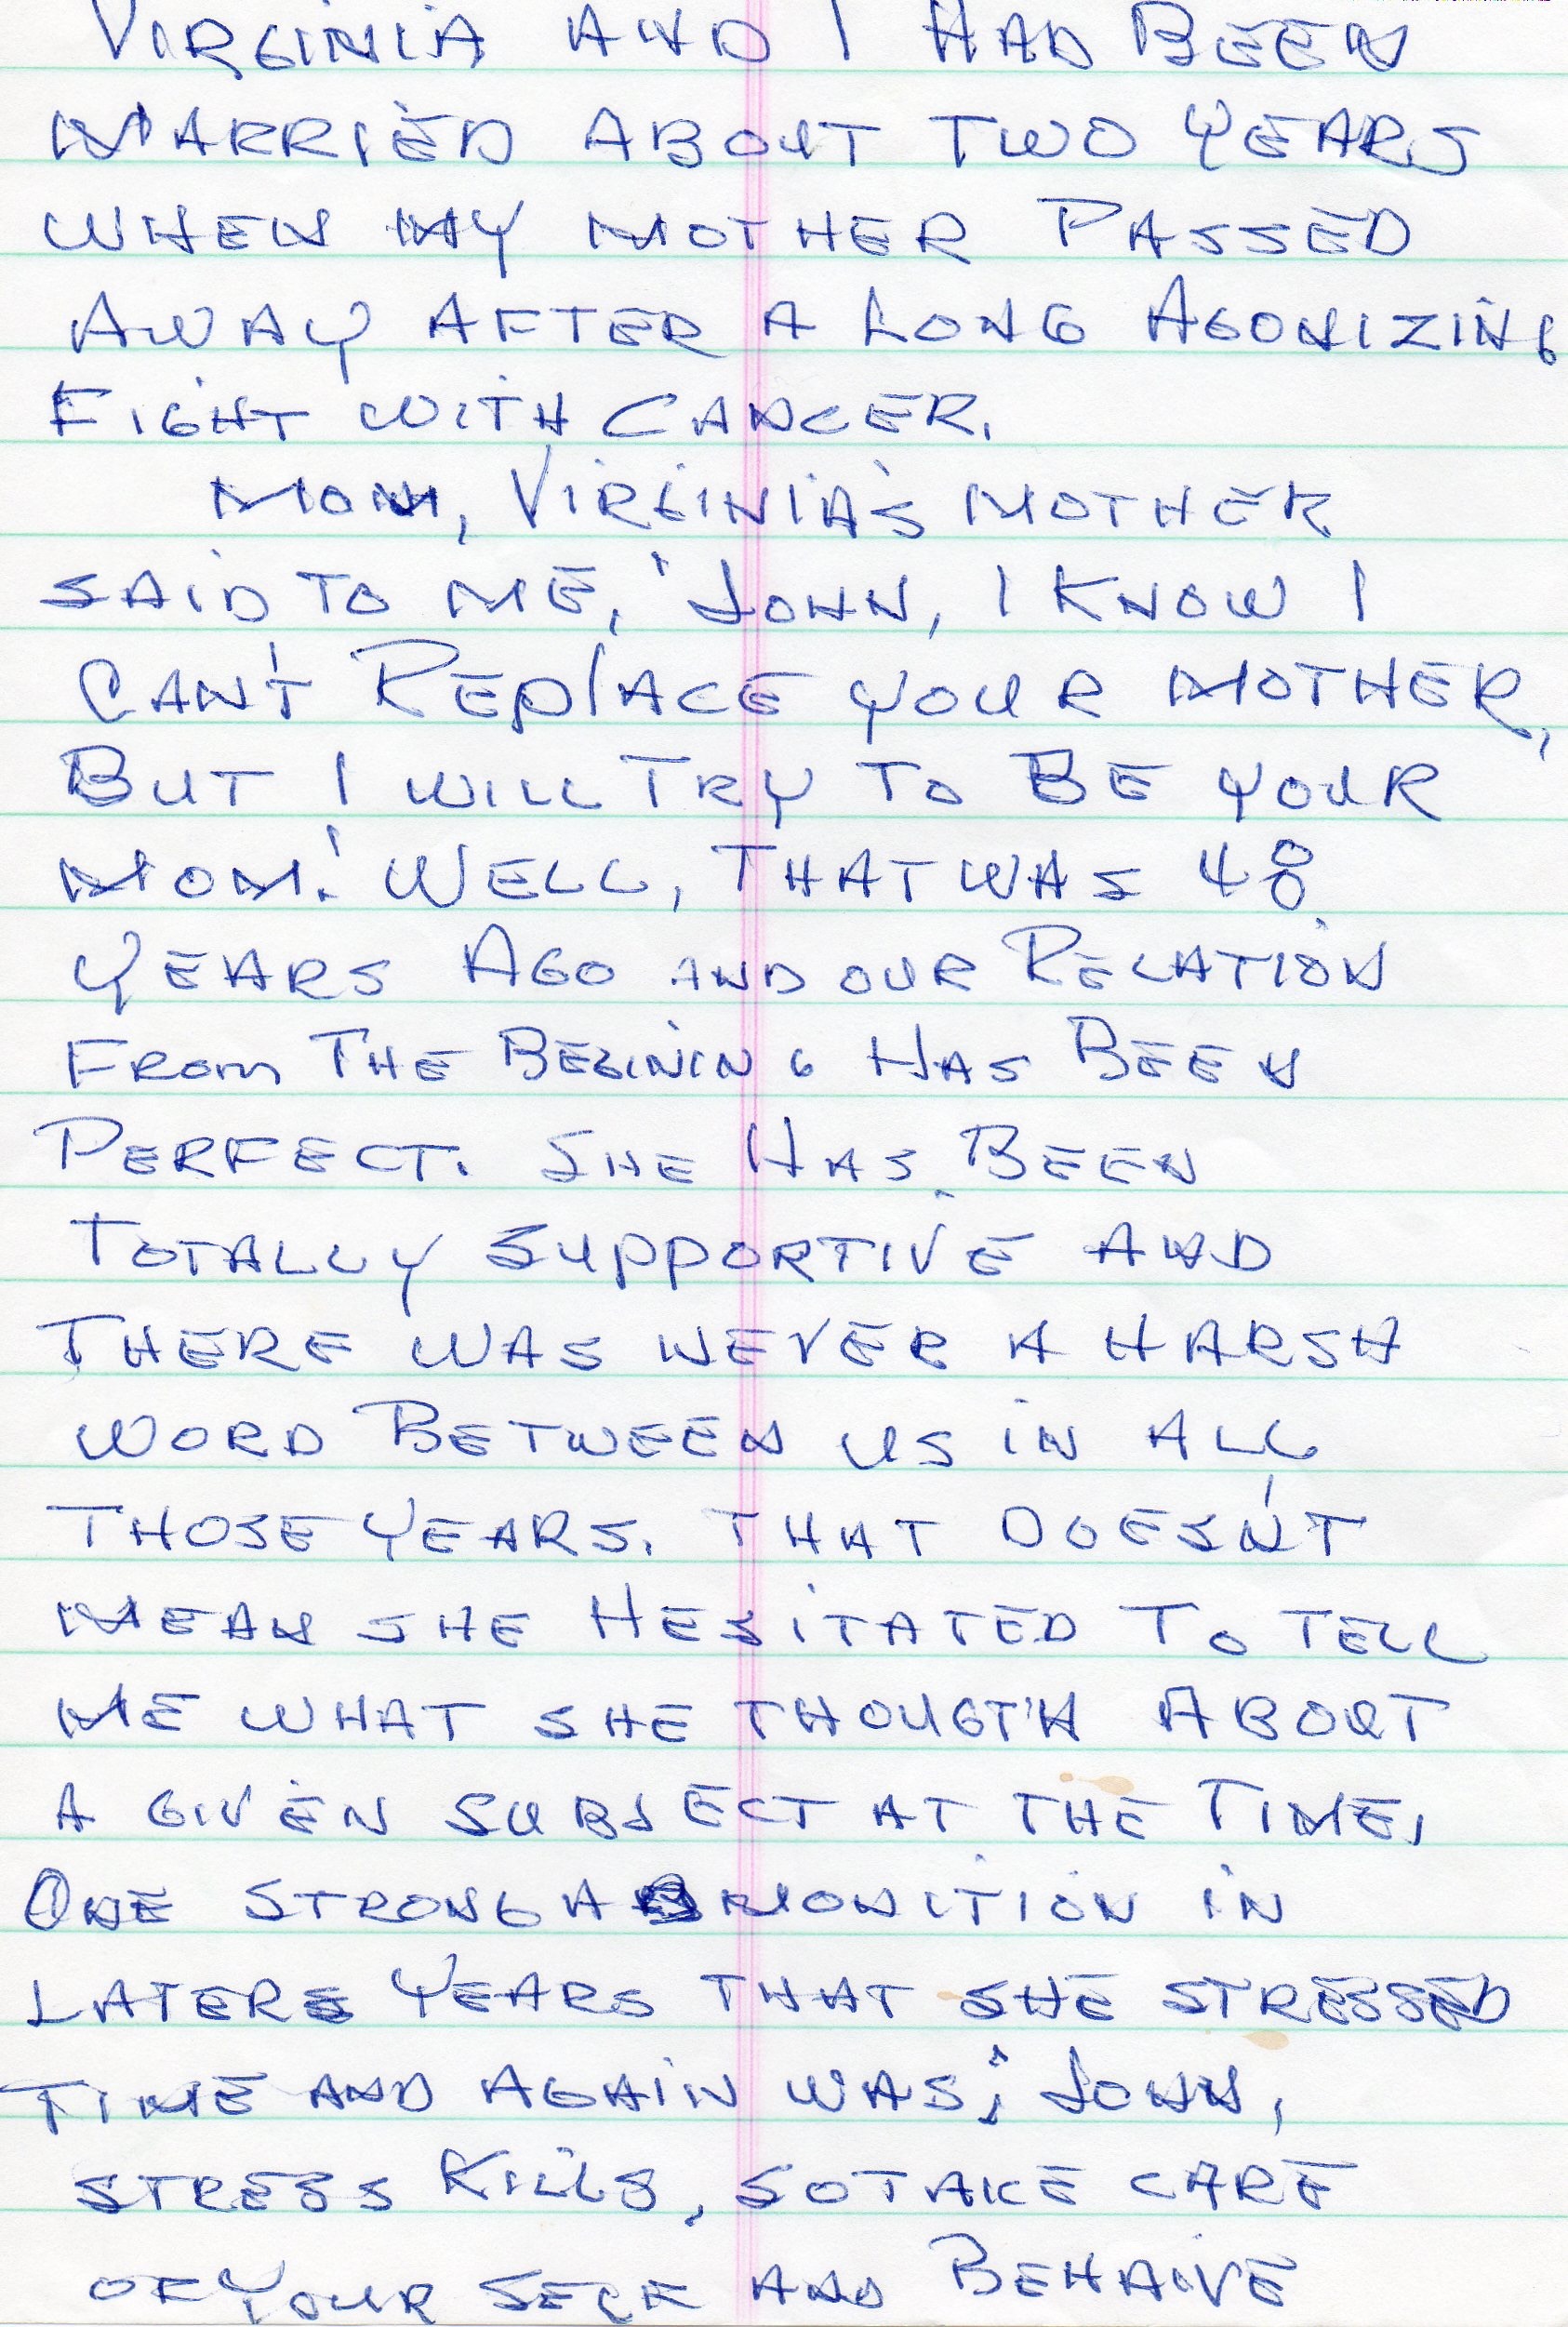 VIRGINIA AND I HAD BEEN
MARRIED ABOUT TWO YEARS
WHEN MY MOTHER PASSED
AWAY AFTER A LONG AGONIZING
FIGHT WITH CANCER.
MOM, VIRGINIA'S MOTHER
SAID TO ME, "JOHN, I KNOW I
CAN'T REPLACE YOUR MOTHER,
BUT I WILL TRY TO BE YOUR
MOM." WELL, THAT WAS 48
YEARS AGO AND OUR RELATION
FROM THE BEGINING HAS BEEN
PERFECT. SHE HAS BEEN
TOTALLY SUPPORTIVE AND
THERE WAS NEVER A HARSH
WORD BETWEEN US IN ALL
THOSE YEARS. THAT DOESN'T
MEAN SHE HESITATED TO TELL
ME WHAT SHE THOUGTH ABOUT
A GIVEN SUBJECT AT THE TIME.
ONE STRONG ADMONITION IN
LATER YEARS THAT SHE STRESSED
TIME AND AGAIN WAS; "JOHN,
STRESS KILLS, SO TAKE CARE
OF YOUR SELF AND BEHAIVE